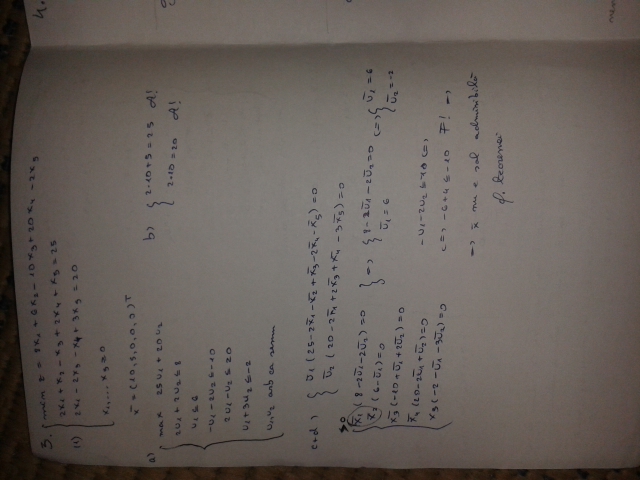 3.
11)
min z = 8x1 + 6x2 - 10x3 + 20x4 - 2x5
2x1 + x2 - x3 + 2x4 + x5 = 25
2x1 - 2x3 - x4 + 3x5 = 20
x1, ... x5 ≥ 0
x̄ = (10, 5, 0, 0, 0)^T
a) max 25u1 + 20u2
2u1 + 2u2 ≤ 8
u1 ≤ 6
-u1 - 2u2 ≤ -10
2u1 - u2 ≤ 20
u1 + 3u2 ≤ -2
u1, u2 arb ca semn
b) { 2·10 + 5 = 25 A!
2·10 = 20 A!
c+d) { ū1 (25 - 2x̄1 - x̄2 + x̄3 - 2x̄4 - x̄5) = 0
ū2 (20 - 2x̄1 + 2x̄3 + x̄4 - 3x̄5) = 0
>0
x̄1 (8 - 2ū1 - 2ū2) = 0
x̄2 (6 - ū1) = 0
x̄3 (-10 + ū1 + 2ū2) = 0
x̄4 (20 - 2ū1 + ū2) = 0
x̄5 (-2 - ū1 - 3ū2) = 0
} => { 8 - 2ū1 - 2ū2 = 0
ū1 = 6
<=> { ū1 = 6
ū2 = -2
-u1 - 2u2 ≤ -10 <=>
<=> -6 + 4 ≤ -10 F! =>
=> x̄ nu e sol admisibilă
pf. teoremei
4.